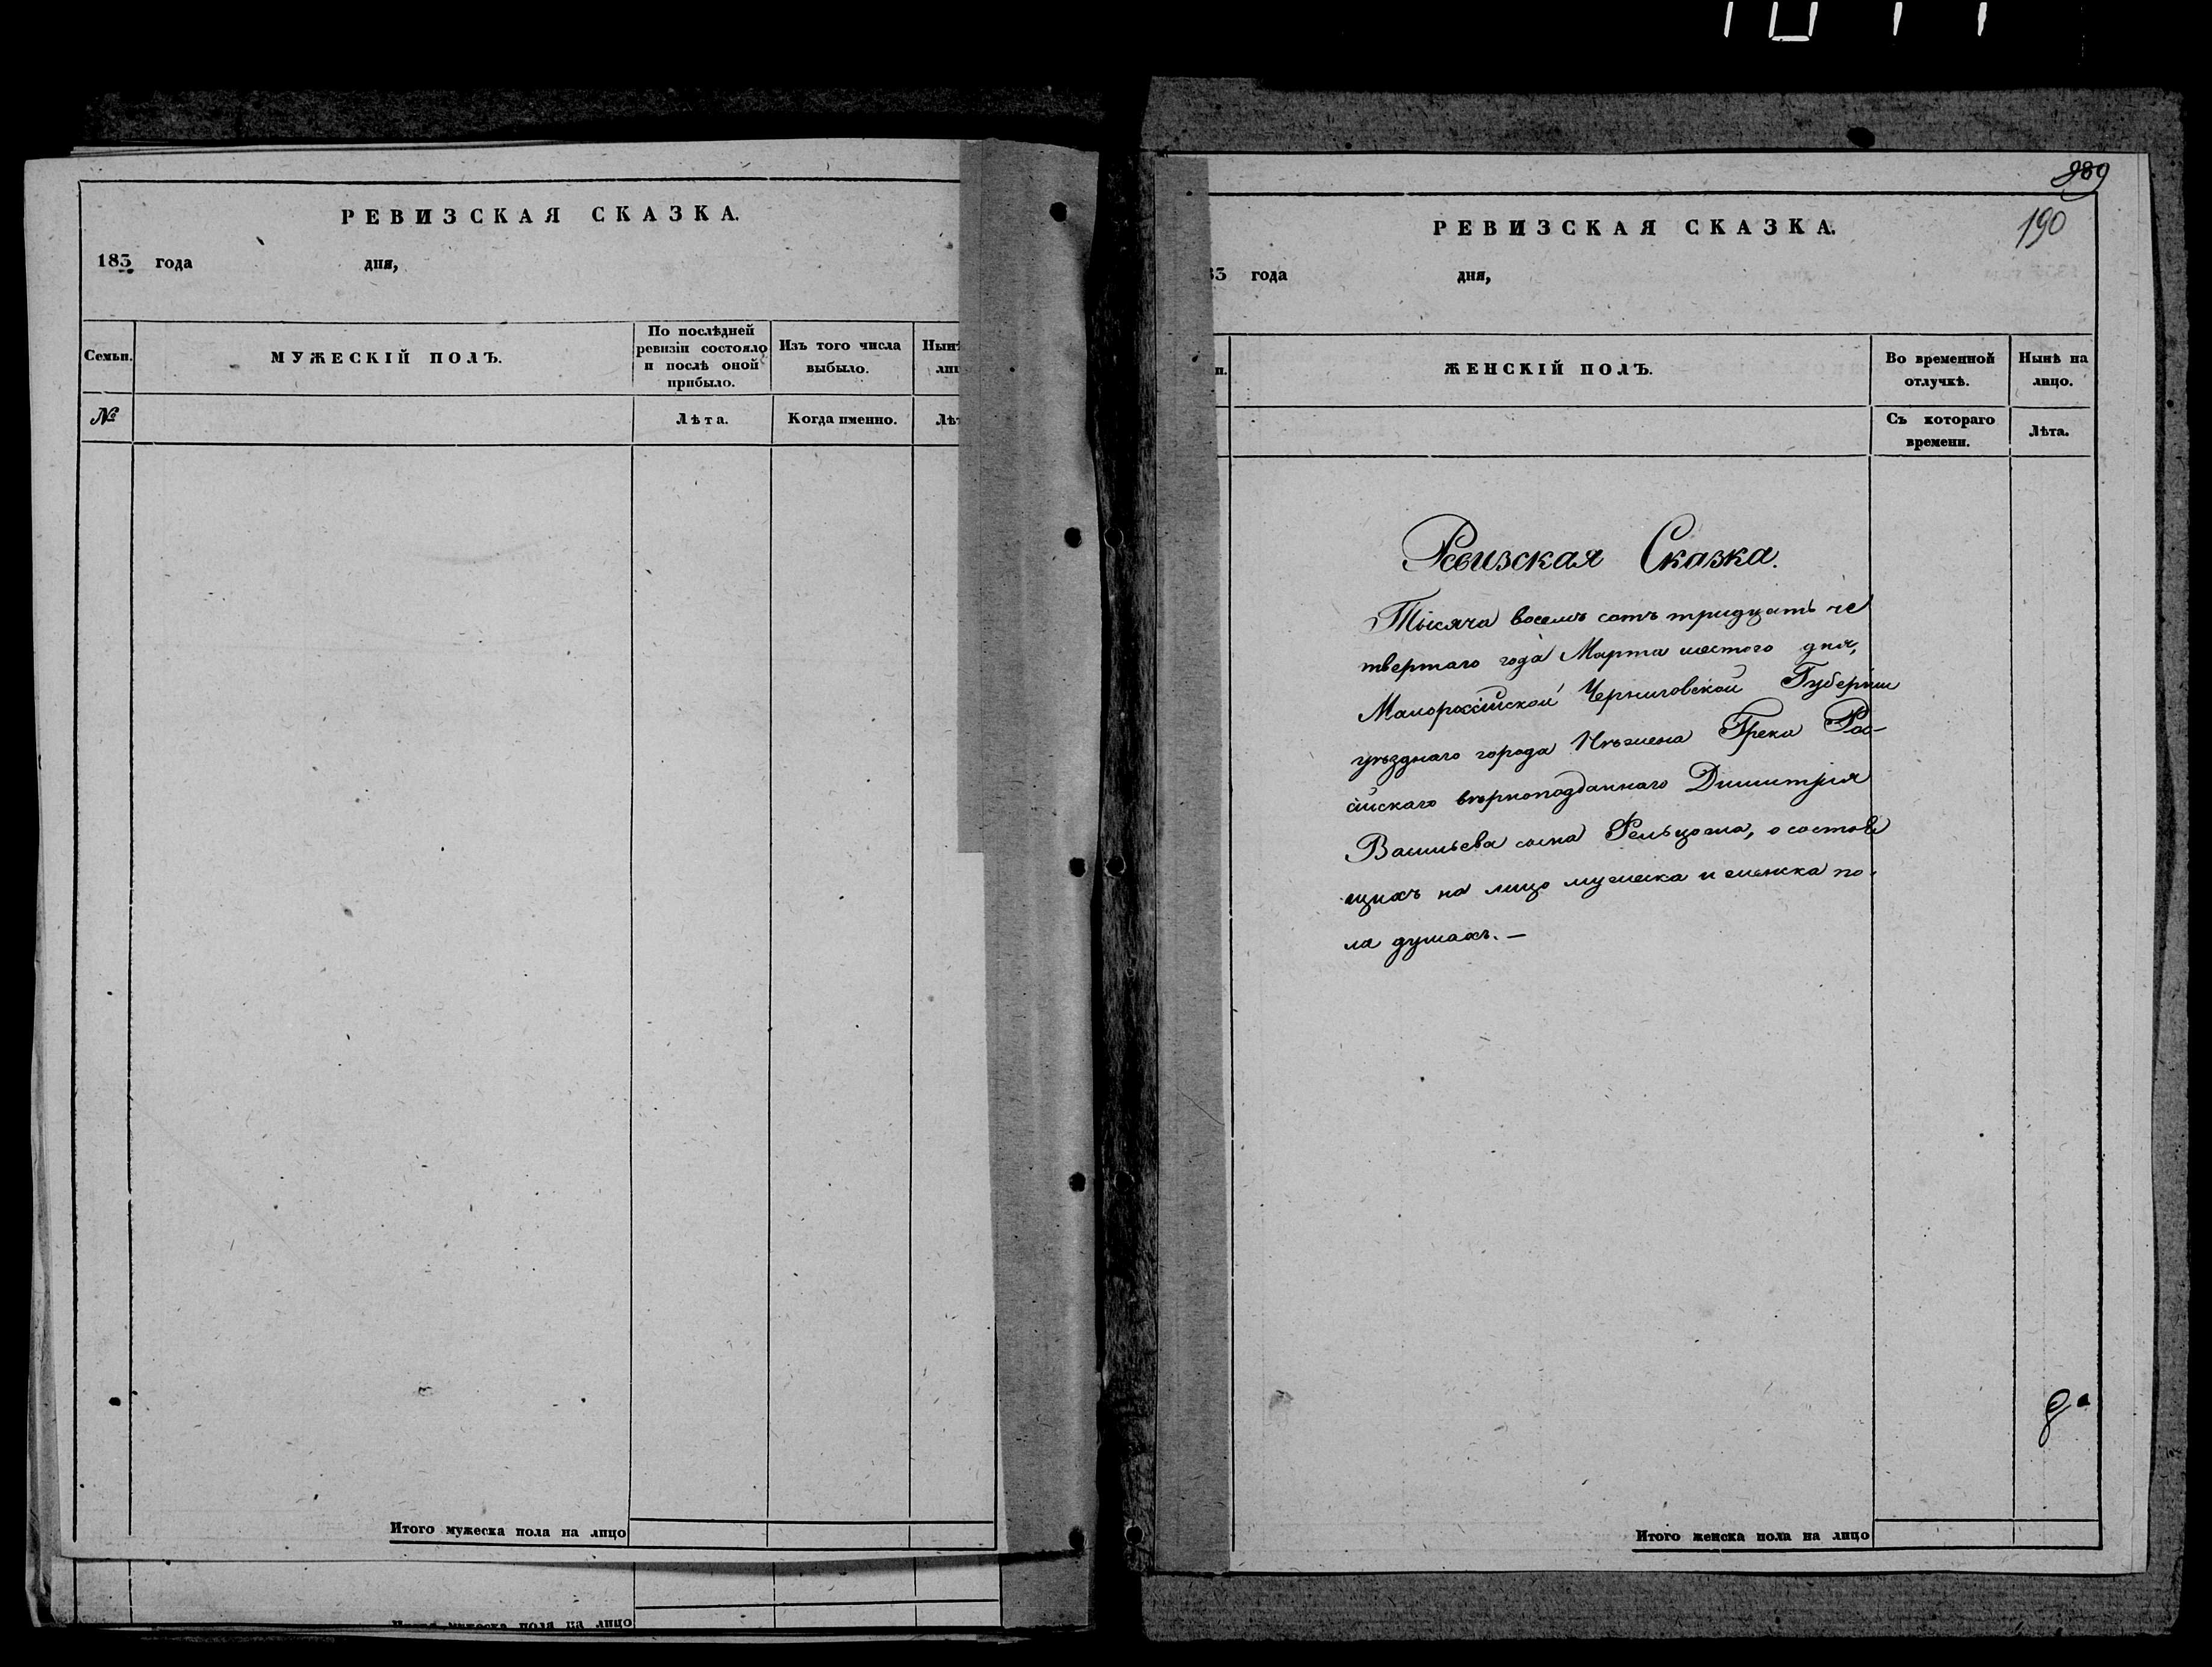 РЕВИЗСКАЯ СКАЗКА.
183 года дня,
Семьи.
МУЖЕСКІЙ ПОЛЪ.
По послѣдней
ревизіи состояло
и послѣ оной
прибыло.
Изъ того числа
выбыло.
Нынѣ
№
Лѣта.
Когда именно.
Лѣт
Итого мужеска пола на лицо
мужеска пола на лицо
289
190
РЕВИЗСКАЯ СКАЗКА.
83 года дня,
ЖЕНСКІЙ ПОЛЪ.
Во временной
отлучкѣ.
Нынѣ на
лицо.
Съ котораго
времени.
Лѣта.
Ревизская Сказка.
Тысяча восемь сотъ тридцать че
твертаго года Марта шестого дня,
Малороссійской Черниговской Губерніи
уѣзднаго города Нѣжена Грека Рос-
сійскаго вѣрноподданнаго Димитрія
Васильева сына, о состоя
щихъ на лицо мужеска и женска по-
ла душахъ. —
Итого женска пола на лицо